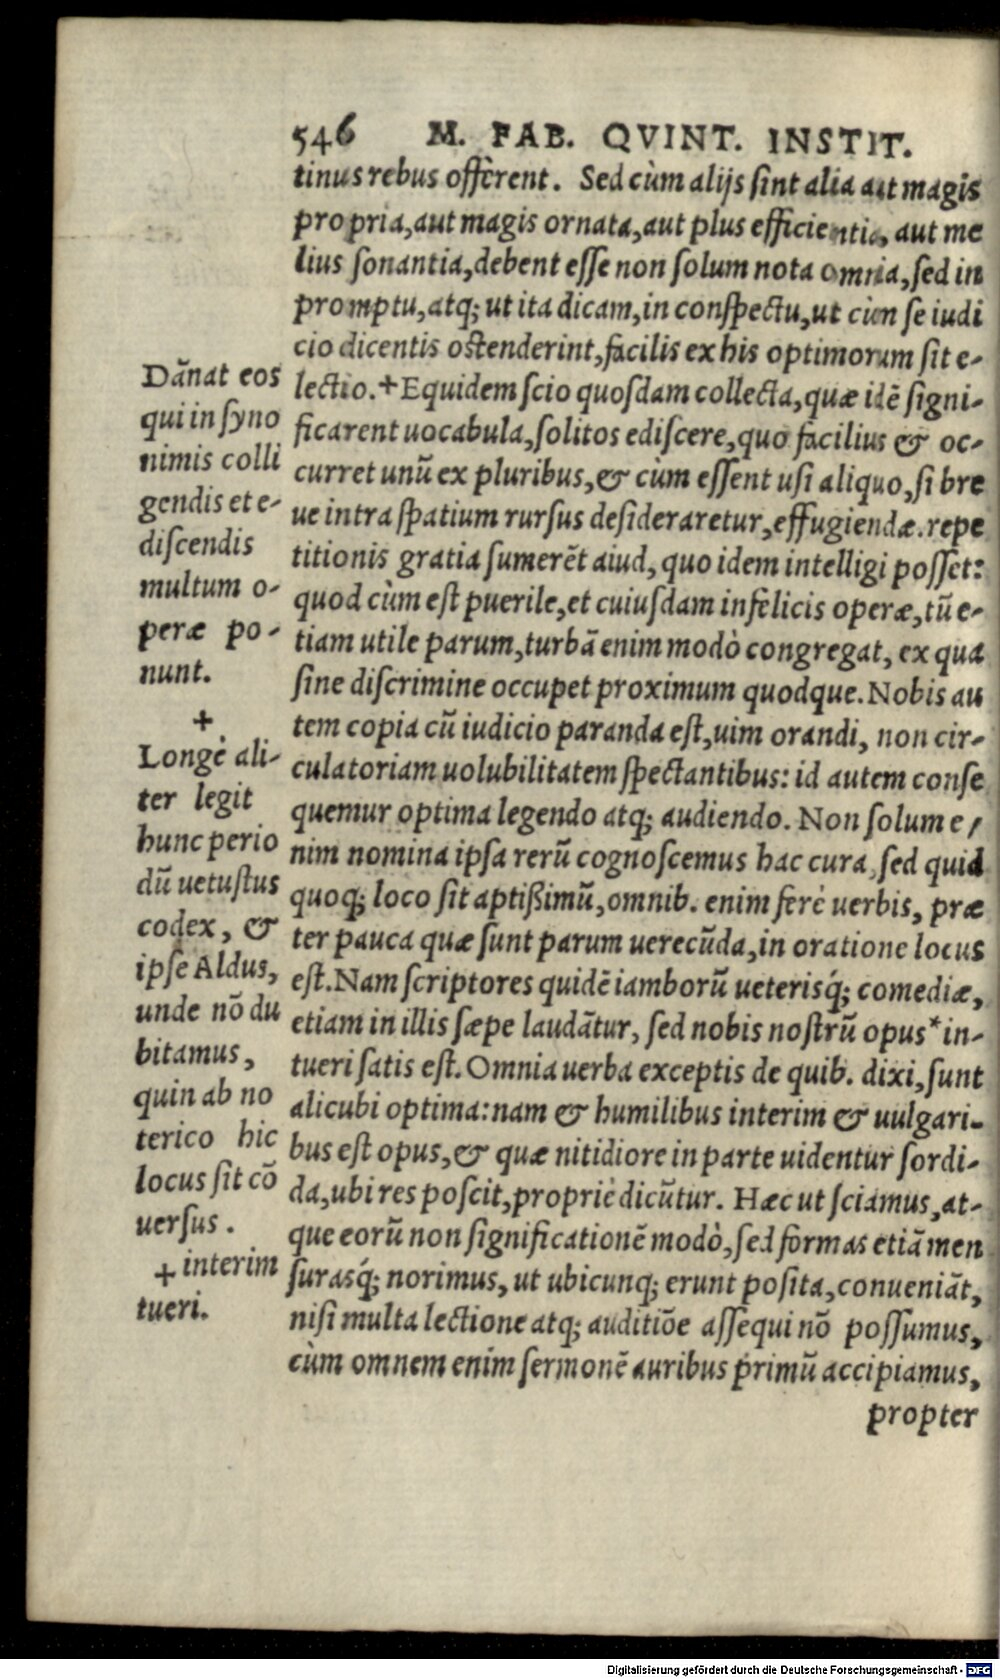 546 M. FAB. QVINT. INSTIT.
tinus rebus offerent. Sed cùm alijs sint alia aut magis
propria, aut magis ornata, aut plus efficientia, aut me
lius sonantia, debent esse non solum nota omnia, sed in
promptu, atq; ut ita dicam, in conspectu, ut cùm se iudi
cio dicentis ostenderint, facilis ex his optimorum sit e-
lectio. + Equidem scio quosdam collecta, quæ idē signi-
ficarent uocabula, solitos ediscere, quo facilius & oc-
curret unū ex pluribus, & cùm essent usi aliquo, si bre
ue intra spatium rursus desideraretur, effugiendæ. repe
titionis gratia sumerēt aiud, quo idem intelligi posset:
quod cùm est puerile, et cuiusdam infelicis operæ, tū e-
tiam utile parum, turbā enim modò congregat, ex qua
sine discrimine occupet proximum quodque. Nobis au
tem copia cū iudicio paranda est, uim orandi, non cir-
culatoriam uolubilitatem spectantibus: id autem conse
quemur optima legendo atq; audiendo. Non solum e-
nim nomina ipsa rerū cognoscemus hac cura, sed quid
quoq; loco sit aptißimū, omnib. enim ferè uerbis, præ
ter pauca quæ sunt parum uerecūda, in oratione locus
est. Nam scriptores quidē iamborū ueterisq́; comediæ,
etiam in illis sæpe laudātur, sed nobis nostrū opus * in-
tueri satis est. Omnia uerba exceptis de quib. dixi, sunt
alicubi optima: nam & humilibus interim & uulgari-
bus est opus, & quæ nitidiore in parte uidentur sordi-
da, ubi res poscit, propriè dicūtur. Hæc ut sciamus, at-
que eorū non significationē modò, sed formas etiā men
surasq́; norimus, ut ubicunq; erunt posita, conueniāt,
nisi multa lectione atq; auditiōe assequi nō possumus,
cùm omnem enim sermonē auribus primū accipiamus,
propter
Dānat eos
qui in syno
nimis colli
gendis et e-
discendis
multum o-
peræ po-
nunt.
+
Longè ali-
ter legit
hunc perio
dū uetustus
codex, &
ipse Aldus,
unde nō du
bitamus,
quin ab no
terico hic
locus sit cō
uersus.
+ interim
tueri.
Digitalisierung gefördert durch die Deutsche Forschungsgemeinschaft - DFG